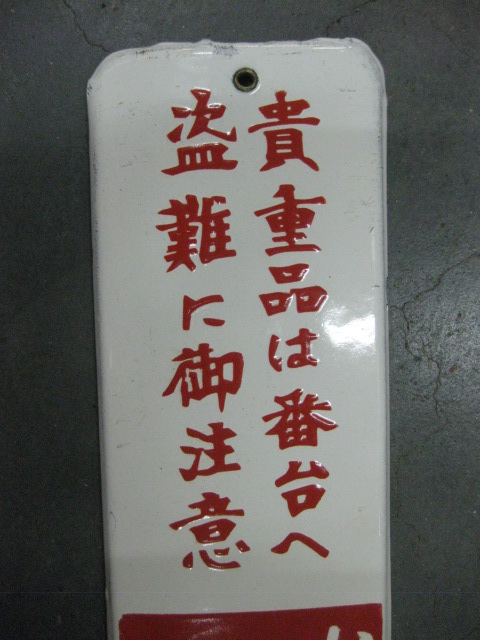 貴重品は番台へ
盗難に御注意